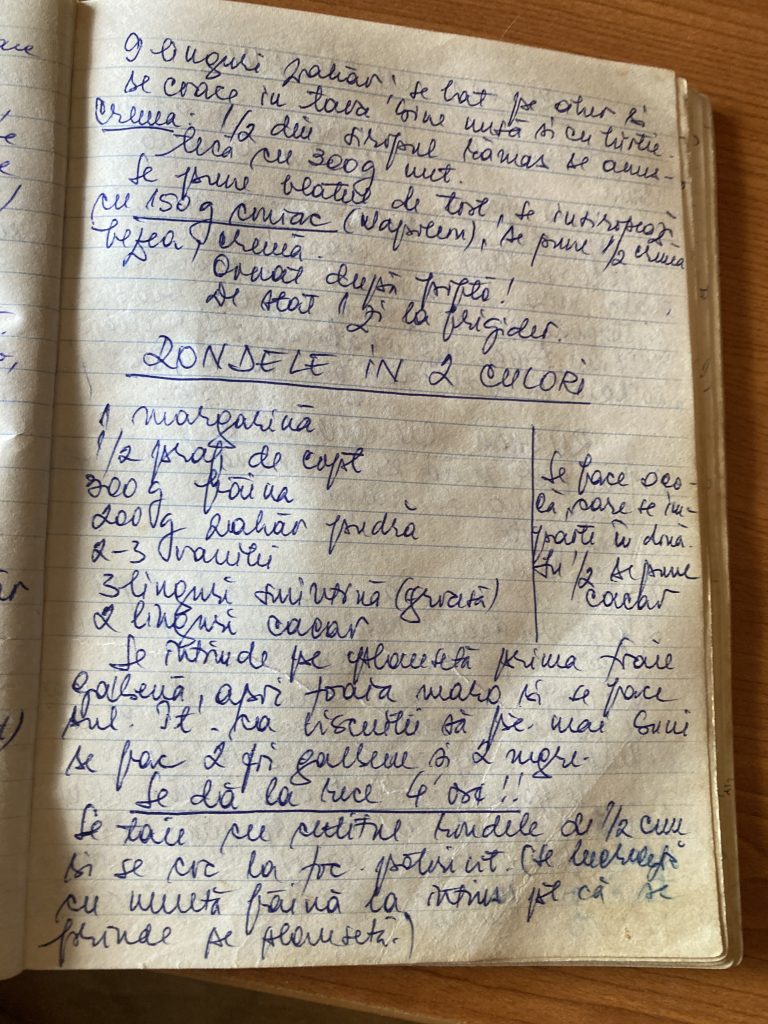 9 linguri zahăr, se bat pe abur și
se coace în tava bine unsă și cu hîrtie.
Crema: 1/2 din siropul rămas se ames-
tecă cu 300g unt.
Se pune blatul de tort, se însiropează
cu 150 g coniac (Napoleon), se pune 1/2 crema
bezea, cremă.
Ornat după poftă!
De stat 1 zi la frigider.
RONDELE ÎN 2 CULORI
1 margarină
1/2 praf de copt
300 g făină
200 g zahăr pudră
2-3 vanilii
3 linguri smîntînă (groasă)
2 linguri cacao
Se face o co-
că, care se îm-
parte în două.
În 1/2 se pune
cacao
Se întinde pe planșetă prima foaie
galbenă, apoi foaia maro și se face
sul. Pt. ca biscuiții să fie mai buni
se fac 2 foi galbene și 2 negre.
Se dă la rece 4 ore!!
Se taie cu cuțitul rondele de 1/2 cm
și se coc la foc potrivit. (Se lucrează
cu multă făină la întins pt că se
prinde pe planșetă.)